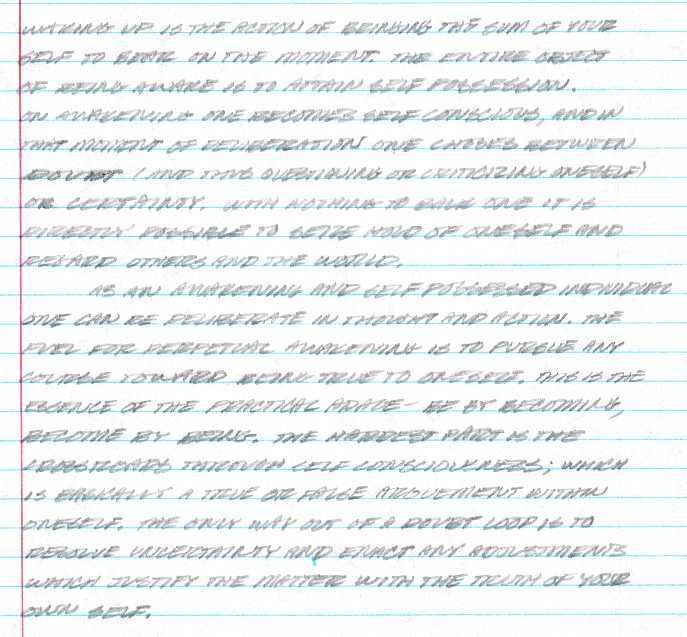 WAKING UP IS THE ACTION OF BRINGING THE SUM OF YOUR
SELF TO BEAR ON THE MOMENT. THE ENTIRE OBJECT
OF BEING AWARE IS TO ATTAIN SELF POSSESSION.
ON AWAKENING ONE BECOMES SELF CONSCIOUS, AND IN
THAT MOMENT OF DELIBERATION ONE CHOSES BETWEEN
DOUBT (AND THUS QUESTIONING OR CRITICIZING ONESELF)
OR CERTAINTY. WITH NOTHING TO BALK ONE IT IS
DIRECTLY POSSIBLE TO SEIZE HOLD OF ONESELF AND
REGARD OTHERS AND THE WORLD.
AS AN AWAKENING AND SELF POSSESSED INDIVIDUAL
ONE CAN BE DELIBERATE IN THOUGHT AND ACTION. THE
FUEL FOR PERPETUAL AWAKENING IS TO PURSUE ANY
COURSE TOWARD BEING TRUE TO ONESELF. THIS IS THE
ESSENCE OF THE PRACTICAL ADAGE - BE BY BECOMING,
BECOME BY BEING. THE HARDEST PART IS THE
CROSSROADS THROUGH SELF CONSCIOUSNESS; WHICH
IS BASICALLY A TRUE OR FALSE ARGUEMENT WITHIN
ONESELF. THE ONLY WAY OUT OF A DOUBT LOOP IS TO
RESOLVE UNCERTAINTY AND ENACT ANY ADJUSTMENTS
WHICH JUSTIFY THE MATTER WITH THE TRUTH OF YOUR
OWN SELF.